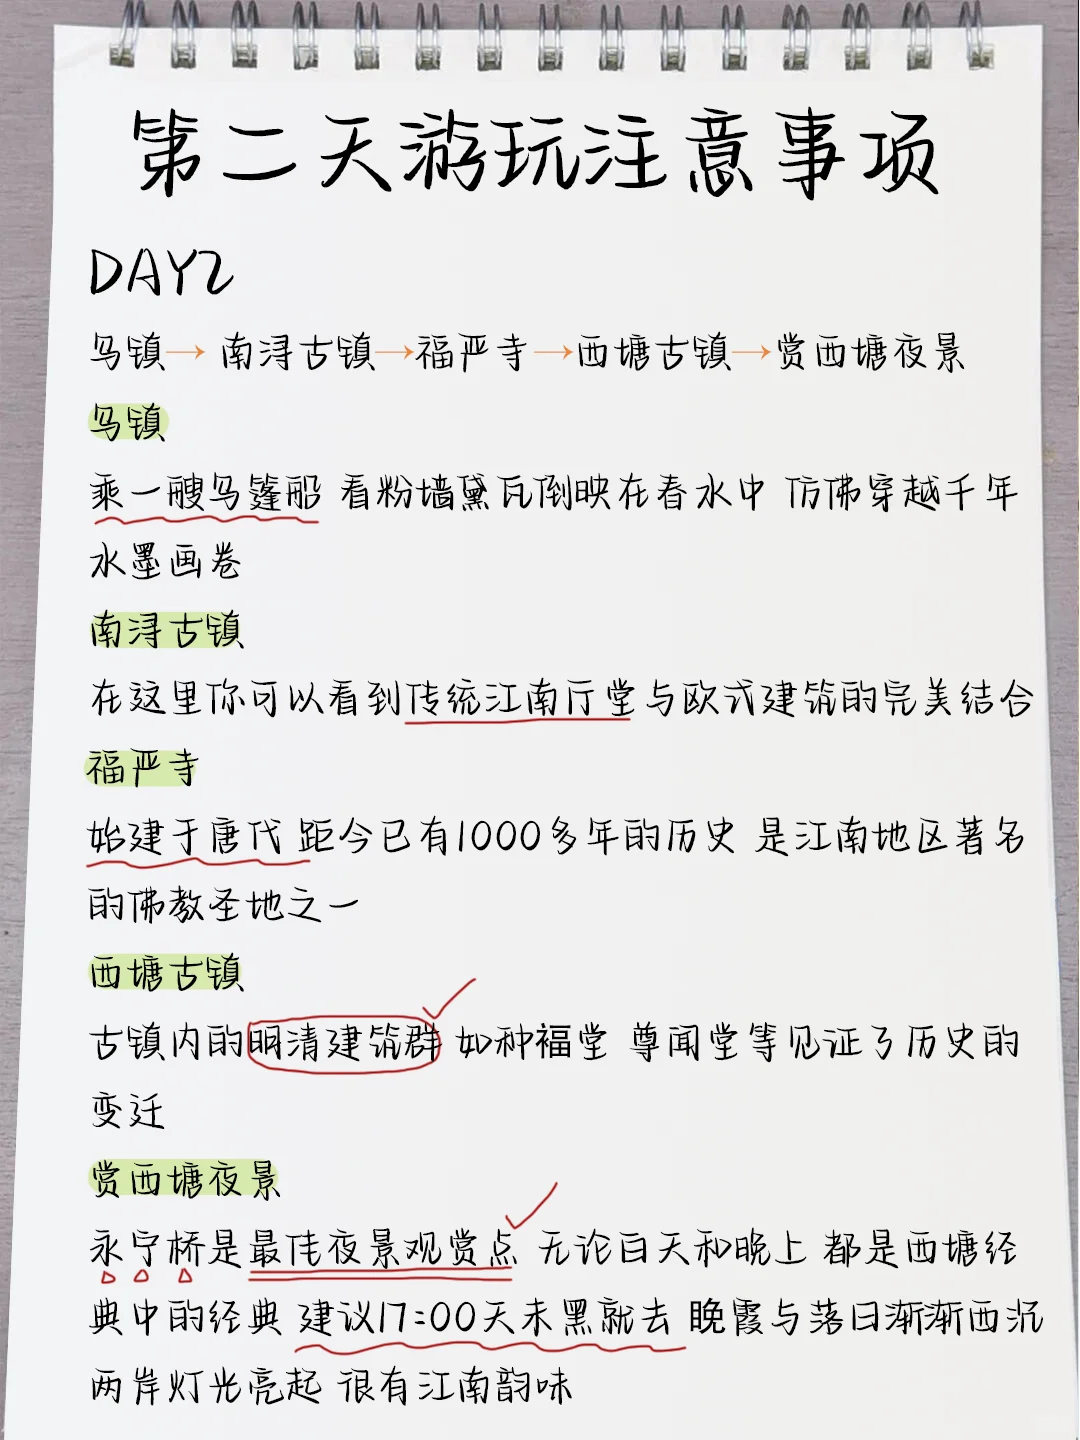 第二天游玩注意事项
DAY2
乌镇→南浔古镇→福严寺→西塘古镇→赏西塘夜景
乌镇
乘一艘乌篷船 看粉墙黛瓦倒映在春水中 仿佛穿越千年
水墨画卷
南浔古镇
在这里你可以看到传统江南厅堂与欧式建筑的完美结合
福严寺
始建于唐代 距今已有1000多年的历史 是江南地区著名
的佛教圣地之一
西塘古镇
古镇内的明清建筑群 如种福堂 尊闻堂等见证了历史的
变迁
赏西塘夜景
永宁桥是最佳夜景观赏点 无论白天和晚上 都是西塘经
典中的经典 建议17:00天未黑就去 晚霞与落日渐渐西沉
两岸灯光亮起 很有江南韵味